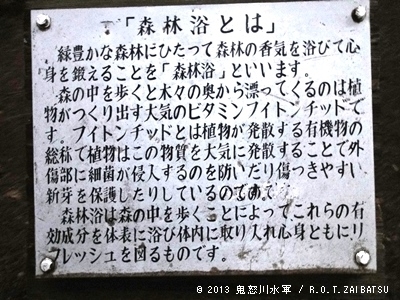 「森林浴とは」
緑豊かな森林にひたって森林の香気を浴びて心
身を鍛えることを「森林浴」といいます。
森の中を歩くと木々の奥から漂ってくるのは植
物がつくり出す大気のビタミンフイトンチッドで
す。フイトンチッドとは植物が発散する有機物の
総称で植物はこの物質を大気に発散することで外
傷部に細菌が侵入するのを防いだり傷つきやすい
新芽を保護したりしているのです。
森林浴は森の中を歩くことによってこれらの有
効成分を体表に浴び体内に取り入れ心身ともにリ
フレッシュを図るものです。
© 2013 鬼怒川水軍 / R.O.T.ZAIBATSU